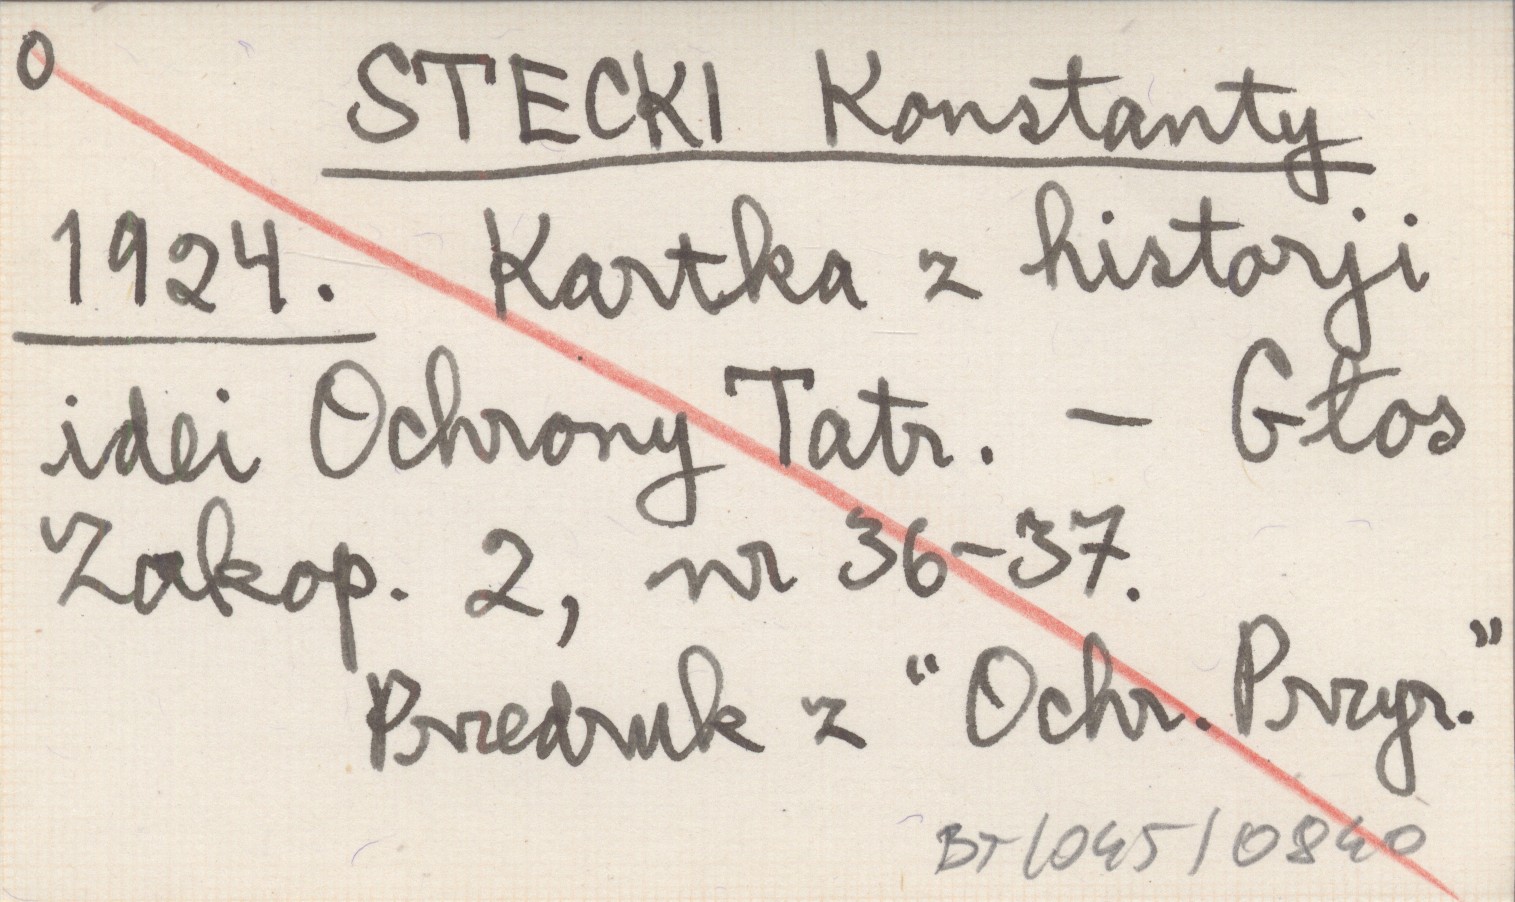 O STECKI Konstanty
1924. Kartka z historji
idei Ochrony Tatr. – Głos
Zakop. 2, nr 36-37.
Przedruk z “Ochr. Przyr.”
BT/045/0840